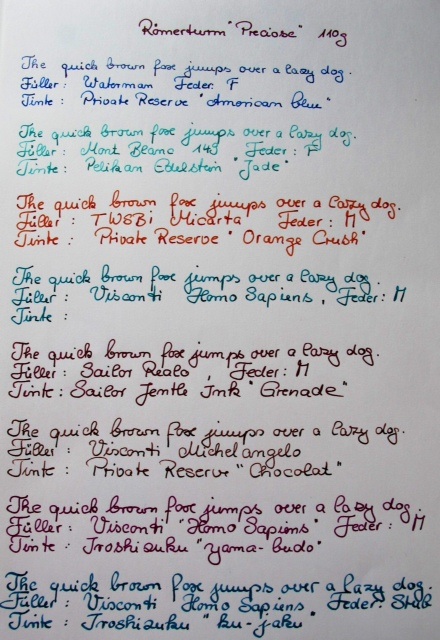 Römerturm "Preciosa" 110g
The quick brown fox jumps over a lazy dog.
Füller: Waterman Feder: F
Tinte: Private Reserve "American blue"
The quick brown fox jumps over a lazy dog.
Füller: Mont Blanc 145 Feder: F
Tinte: Pelikan Edelstein "Jade"
The quick brown fox jumps over a lazy dog.
Füller: TWSBi Micarta Feder: M
Tinte: Private Reserve "Orange Crush"
The quick brown fox jumps over a lazy dog.
Füller: Visconti Homo Sapiens, Feder: M
Tinte:
The quick brown fox jumps over a lazy dog.
Füller: Sailor Realo, Feder: M
Tinte: Sailor Jentle Ink "Grenade"
The quick brown fox jumps over a lazy dog.
Füller: Visconti Michelangelo
Tinte: Private Reserve "Chocolat"
The quick brown fox jumps over a lazy dog.
Füller: Visconti "Homo Sapiens" Feder: M
Tinte: Iroshizuku "yama-budo"
The quick brown fox jumps over a lazy dog.
Füller: Visconti Homo Sapiens Feder: Stub
Tinte: Iroshizuku "ku-jaku"